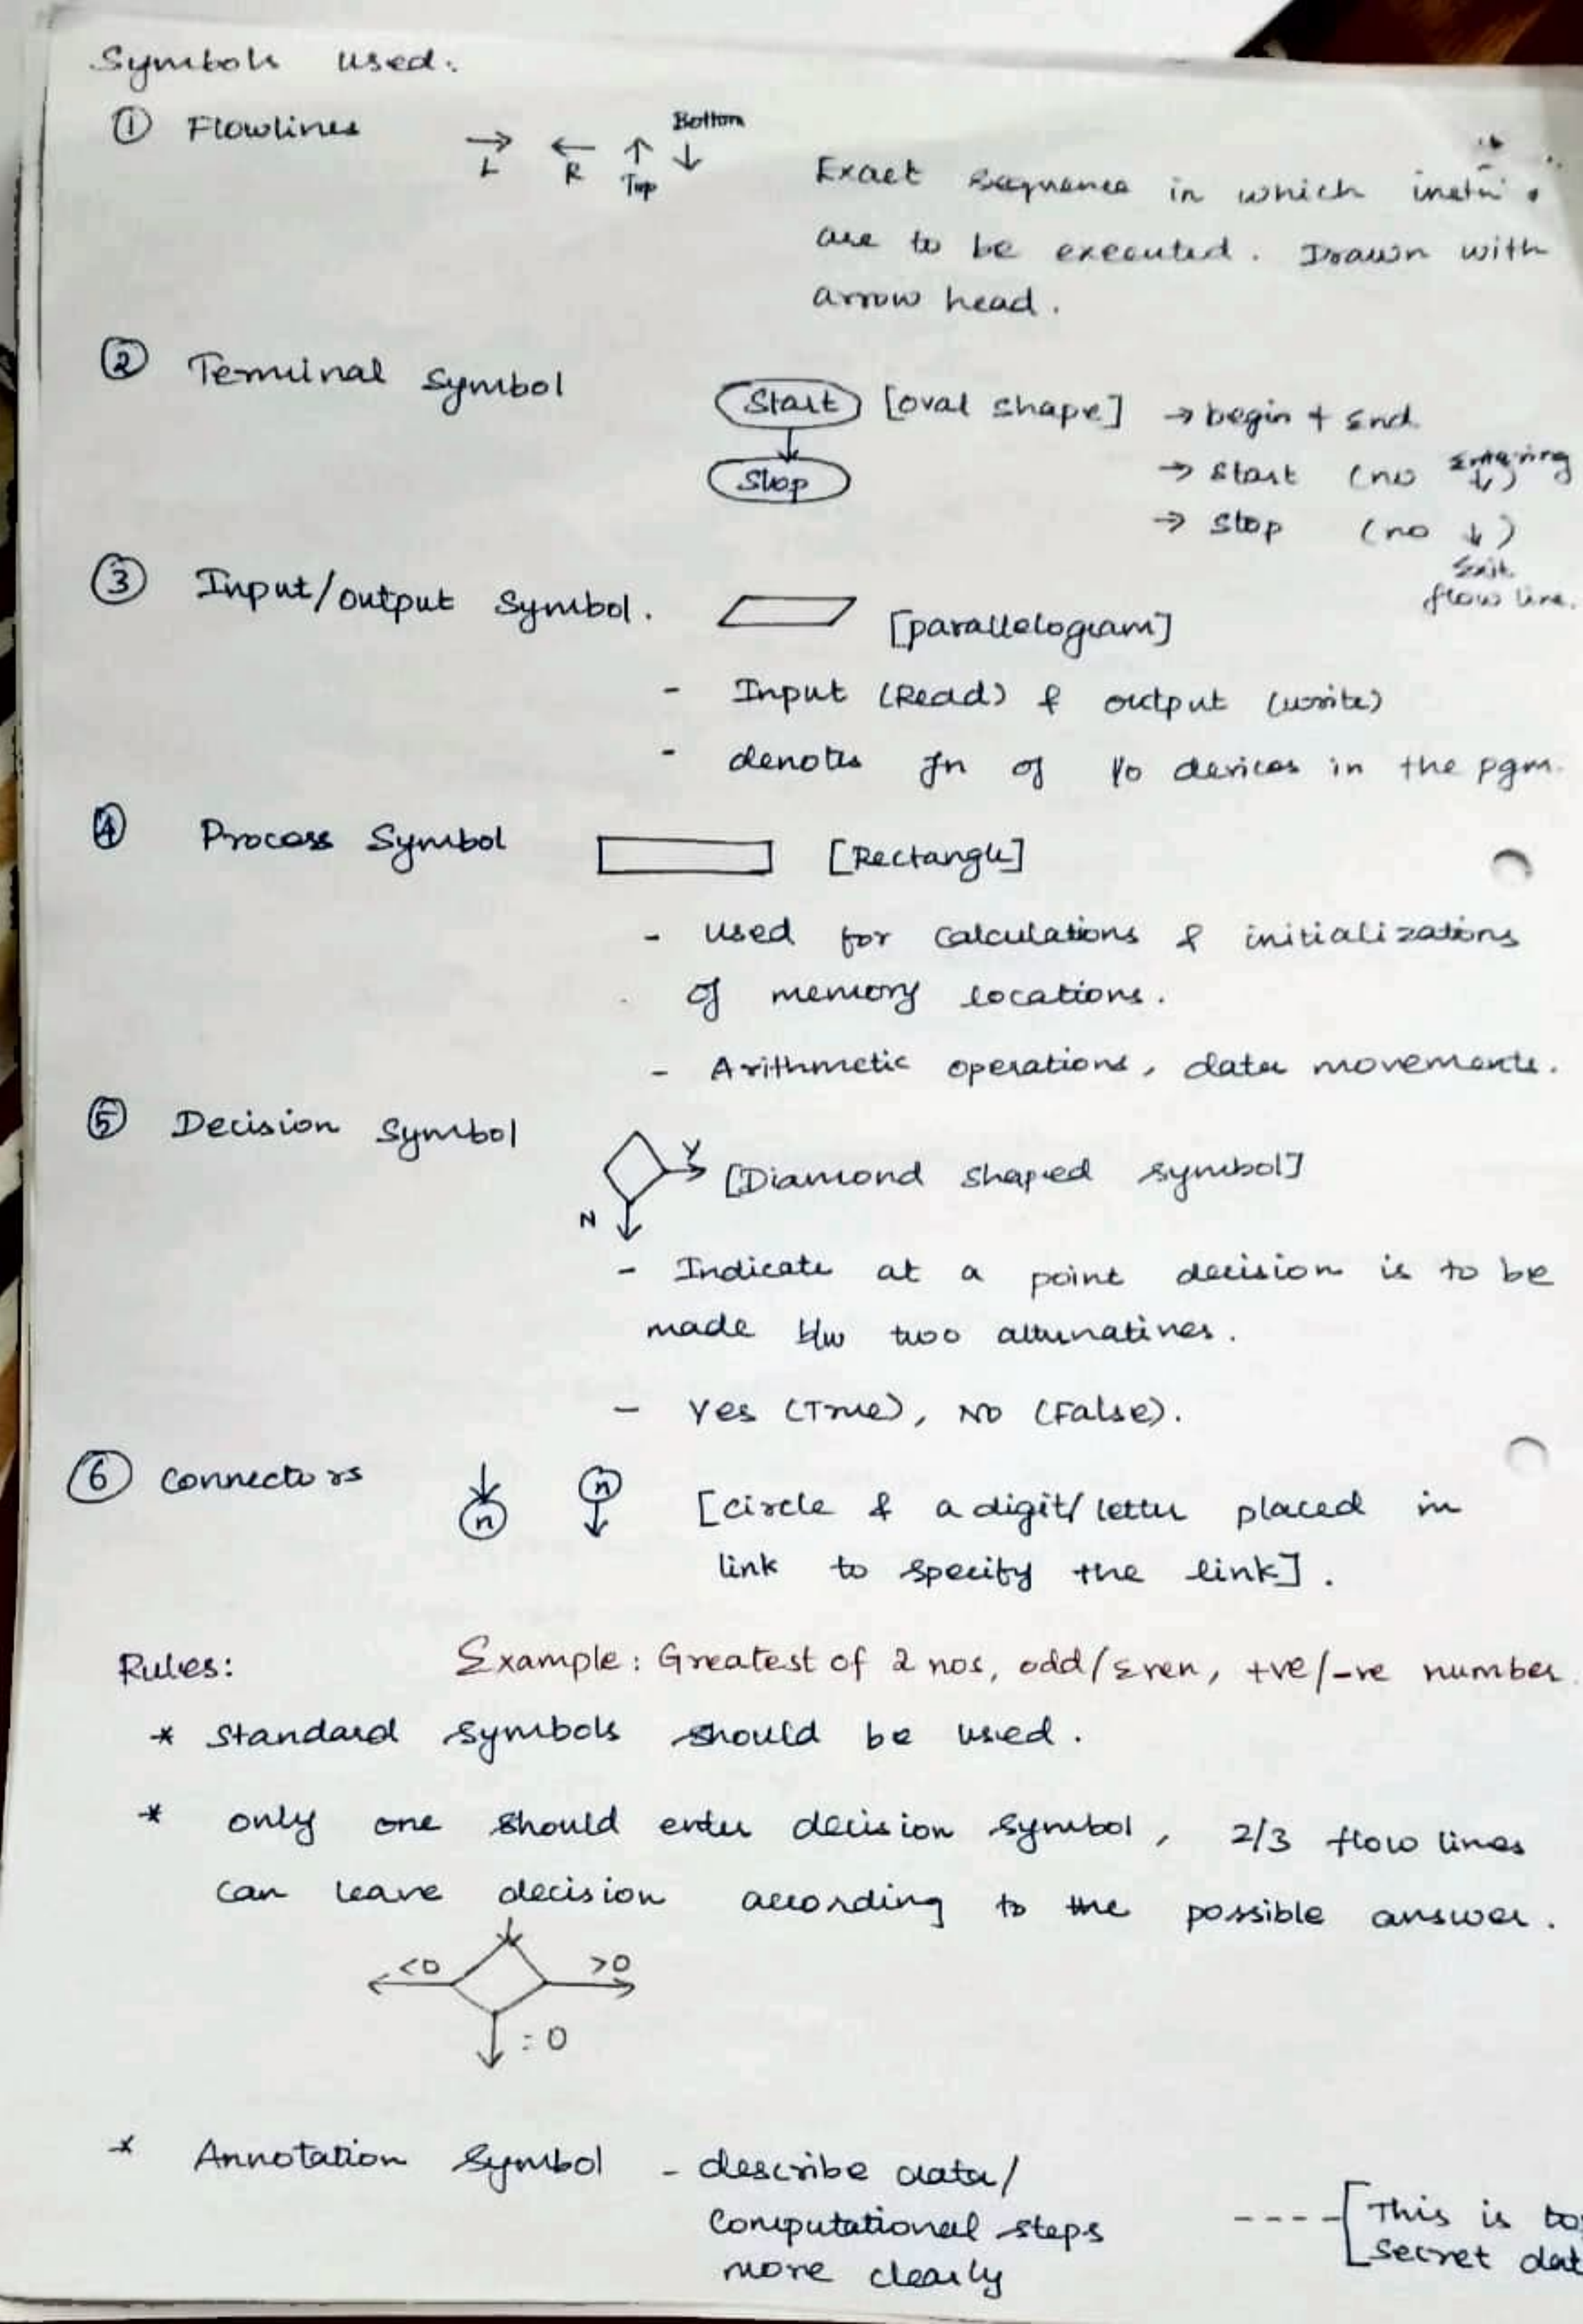 Symbols used:
① Flowlines → L ← R ↑ Top Bottom ↓
Exact sequence in which
are to be executed. Drawn with
arrow head.
② Terminal Symbol Start [oval shape] → begin + End
Stop → Start (no Entering ↓)
→ Stop (no ↓)
Exit
flow line.
③ Input/output Symbol. [parallelogram]
- Input (Read) & output (write)
- denotes fn of I/o devices in the pgm.
④ Process Symbol [Rectangle]
- used for calculations & initializations
of memory locations.
- Arithmetic operations, data movements.
⑤ Decision Symbol Y [Diamond shaped symbol]
N
- Indicate at a point decision is to be
made b/w two alternatives.
- Yes (True), No (False).
⑥ Connectors n n [circle & a digit/letter placed in
link to specify the link].
Rules: Example: Greatest of 2 nos, odd/Even, +ve/-ve number
* Standard symbols should be used.
* only one should enter decision symbol, 2/3 flow lines
can leave decision according to the possible answer.
<0 >0
=0
* Annotation Symbol - describe data/
Computational steps
more clearly
This is
Secret